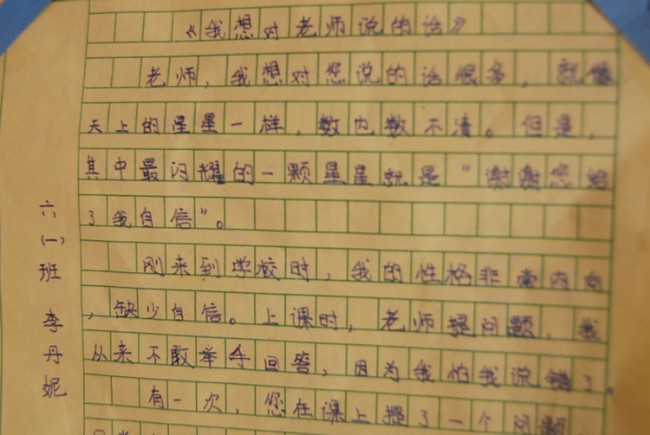 《我想对老师说的话》
老师，我想对您说的话很多，就像
天上的星星一样，数也数不清。但是，
其中最闪耀的一颗星星就是“谢谢您给
了我自信”。
刚来到学校时，我的性格非常内向
，缺少自信。上课时，老师提问题，我
从来不敢举手回答，因为我怕我说错了。
有一次，您在课上提了一个问题
六（一）班 李丹妮